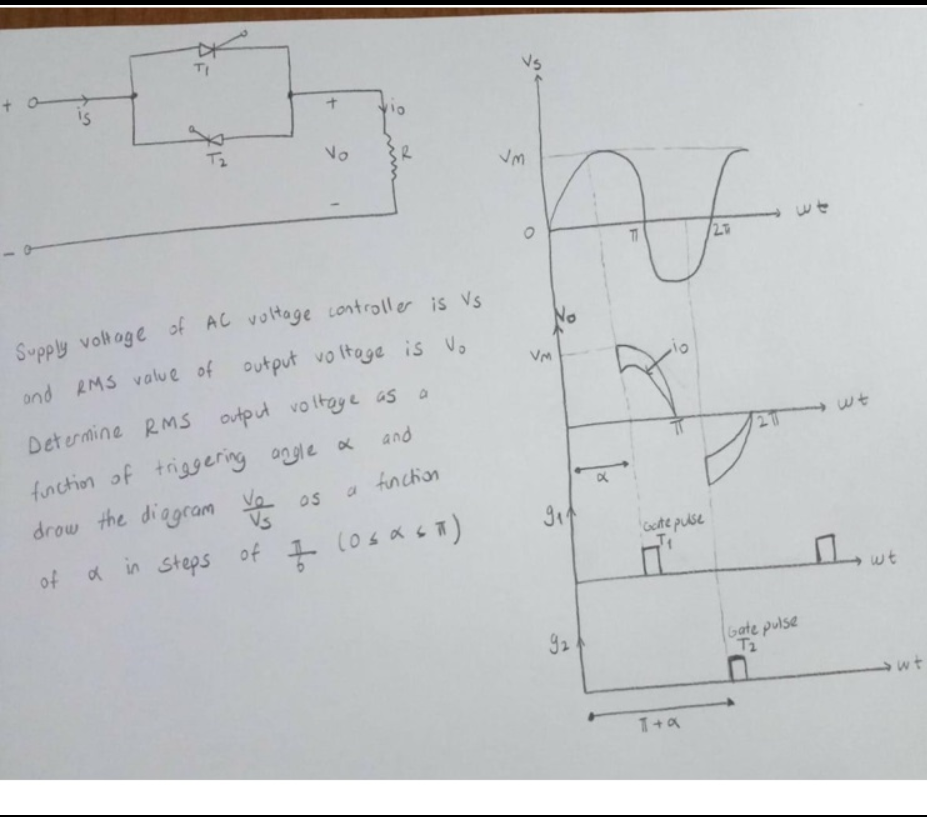 T1
+
is
T2
+
Vo
-
io
R
-
Supply voltage of AC voltage controller is Vs
and RMS value of output voltage is Vo
Determine RMS output voltage as a
function of triggering angle α and
draw the diagram Vo/Vs as a function
of α in steps of π/6 (0 ≤ α ≤ π)
Vs
VM
0
π
2π
wt
Vo
VM
io
π
2π
wt
α
g1
Gate pulse
T1
wt
g2
Gate pulse
T2
wt
π+α